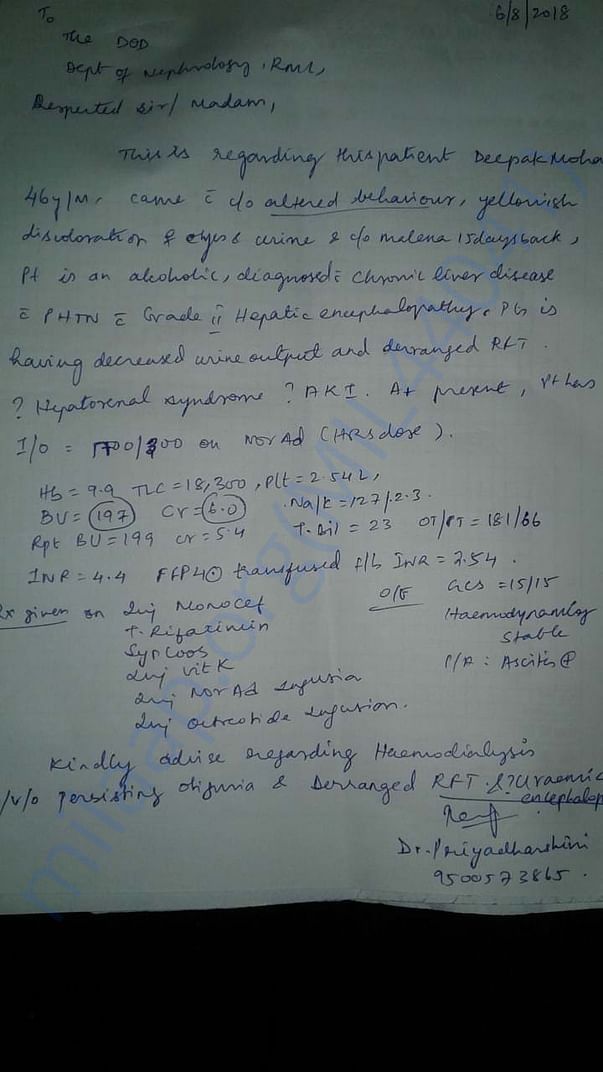 To
6/8/2018
The DOD
Dept of Nephrology, RMI,
Respected Sir/ Madam,
This is regarding this patient Deepak Moha
46y/M, came c̄ c/o altered behaviour, yellowish
discoloration of eyes & urine & c/o malena 15days back,
Pt is an alcoholic, diagnosed c̄ Chronic liver disease
c̄ PHTN c̄ Grade ii Hepatic encephalopathy. Pt is
having decreased urine output and derranged RFT.
? Hepatorenal syndrome ? AKI. At present, Pt has
I/O = on Nor Ad (HRS dose).
Hb = 9.9 TLC = 18,300, Plt = 2.54L,
BU = 197 Cr = 6.0 Na/K = 127/2.3.
Rpt BU = 199 Cr = 5.4 T.Bil = 23 OT/PT = 181/66
INR = 4.4 FFP 4 transfused f/b INR = 2.54.
Rx given on Inj Monocef O/E GCS = 15/15
T. Rifaximin Haemodynamically
Syp Loos Stable
Inj Vit K P/A : Ascites ⊕
Inj Nor Ad Infusion
Inj Octreotide Infusion.
Kindly advise regarding Haemodialysis
i/v/o persisting oliguria & Derranged RFT & ? Uraemic
encephalop
Dr. Priyadharshini
9500573865.
milaap.org